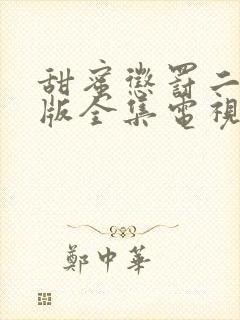 甜蜜懲罰二
版全集電視
鄭中華